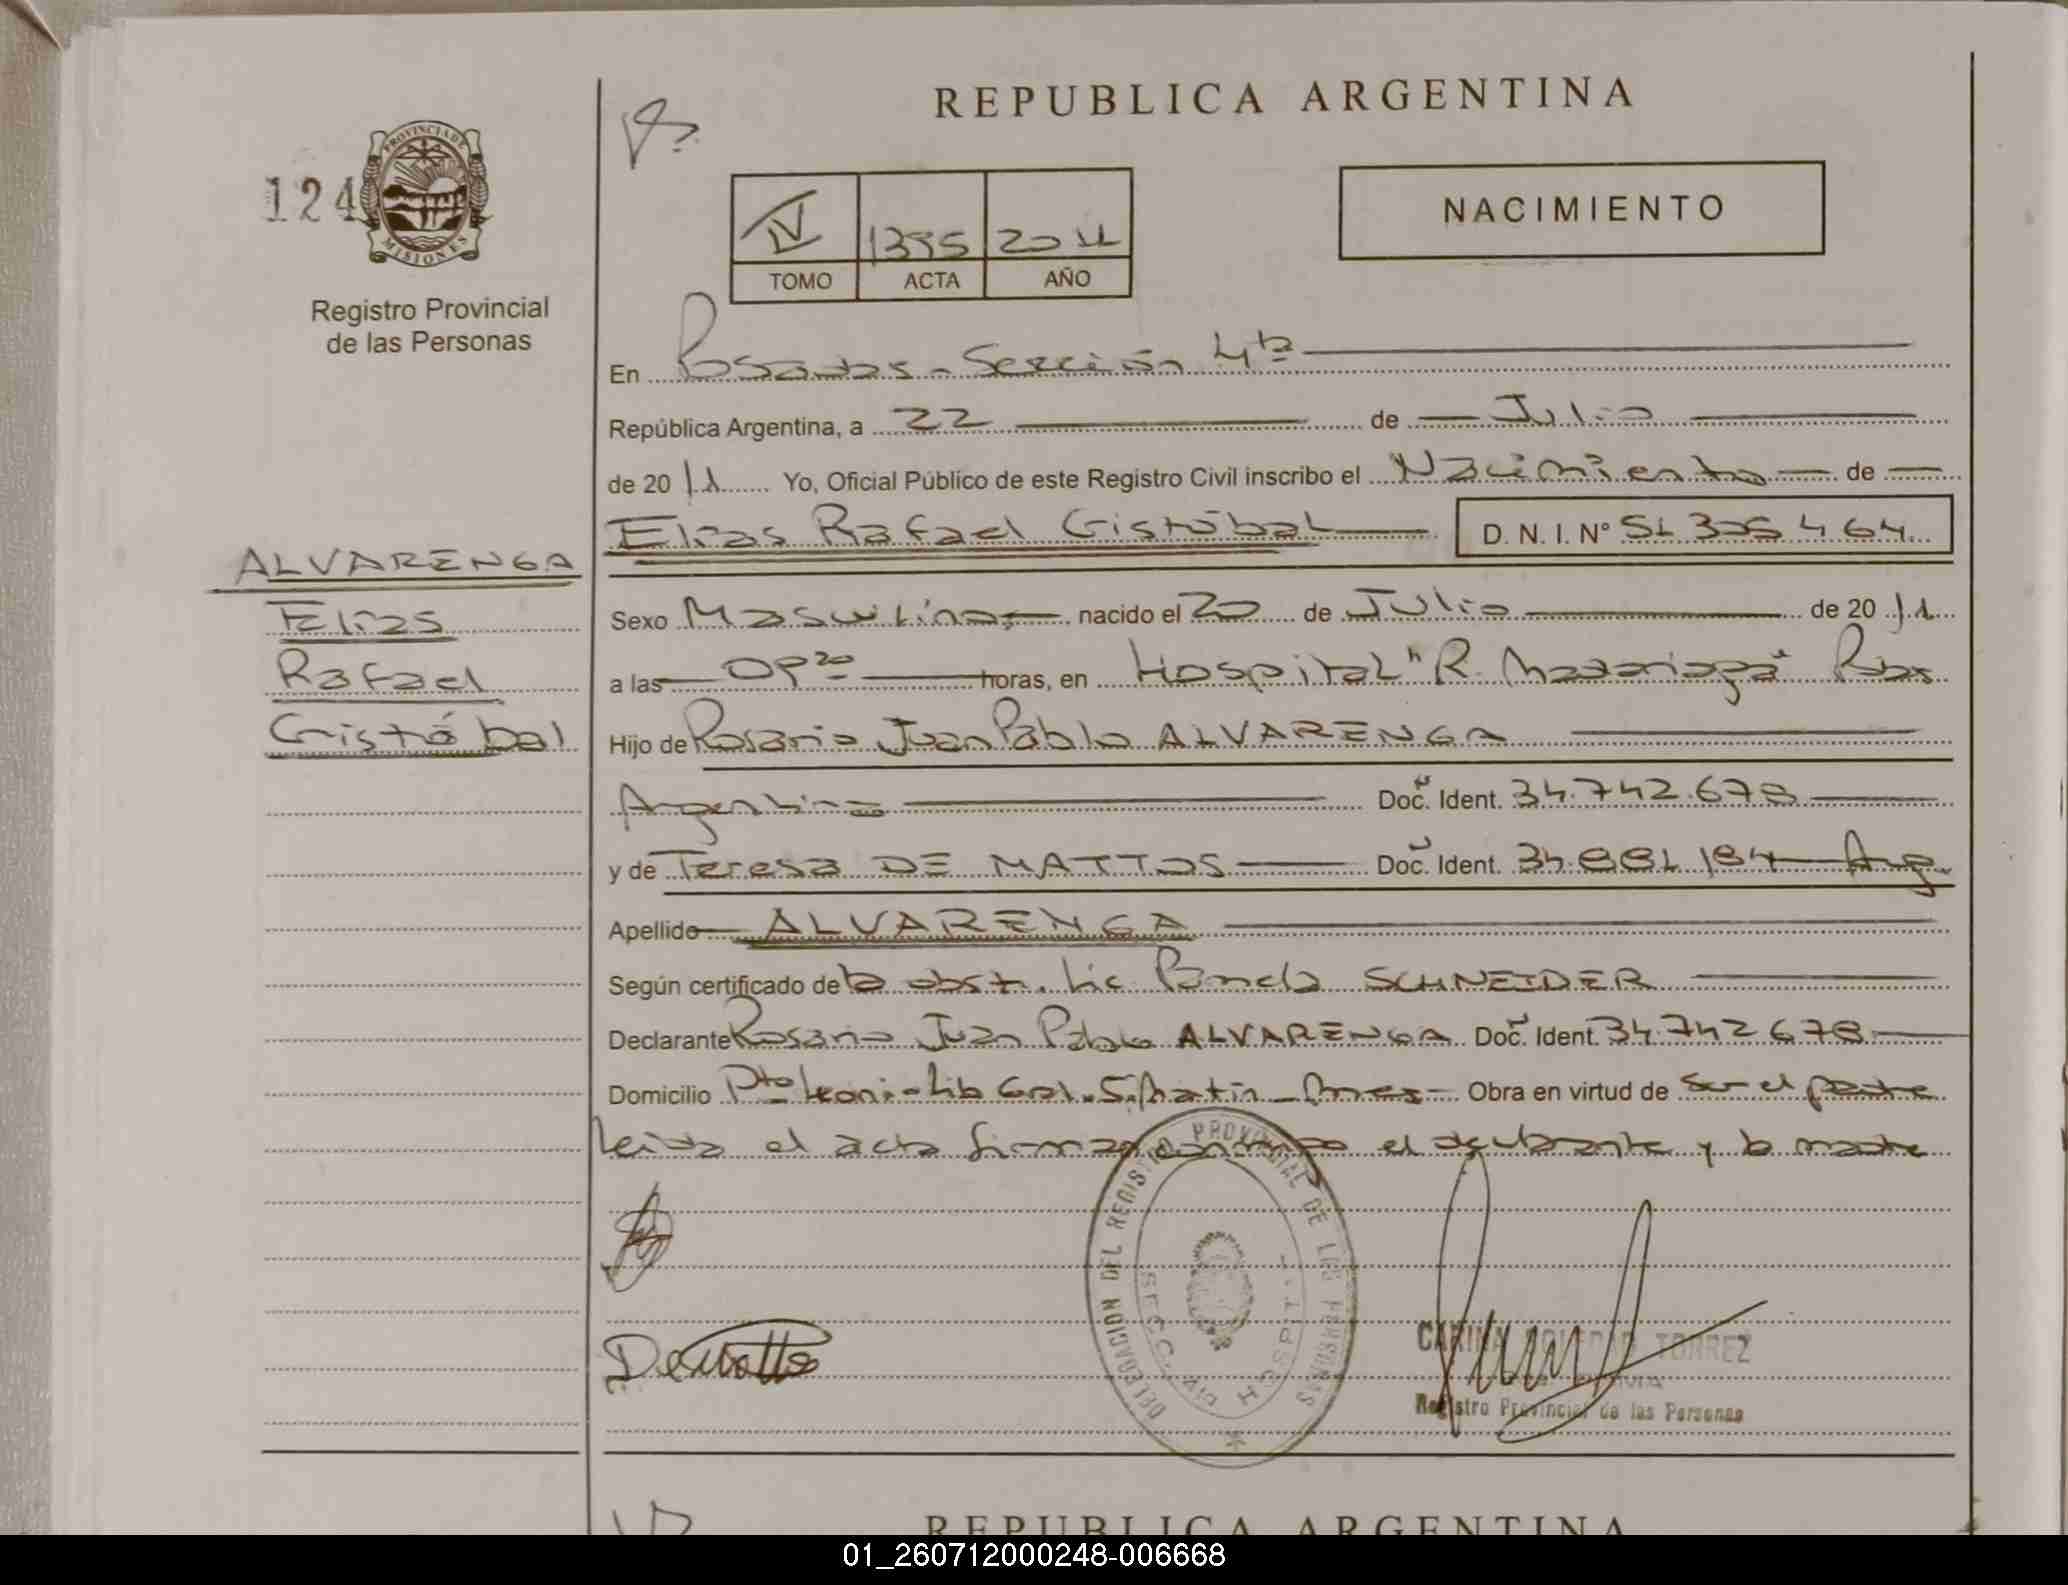 REPUBLICA ARGENTINA
124
PROVINCIA DE MISIONES
Registro Provincial
de las Personas
IV 1395 2011
TOMO ACTA AÑO
NACIMIENTO
En Posadas - Sección 4ta
República Argentina, a 22 de Julio
de 2011 Yo, Oficial Público de este Registro Civil inscribo el Nacimiento de
Elias Rafael Cristóbal D. N. I. Nº 51 305 464
ALVARENGA
Elias
Rafael
Cristóbal
Sexo Masculino nacido el 20 de Julio de 2011
a las horas, en Hospital "R. Madariaga" Pdas
Hijo de Rosario Juan Pablo ALVARENGA
Argentino Doc. Ident. 34.742.678
y de Teresa DE MATTOS Doc. Ident. 34.881.184 Arg.
Apellido ALVARENGA
Según certificado de la obst. Lic Pamela SCHNEIDER
Declarante Rosario Juan Pablo ALVARENGA Doc. Ident. 34.742.678
Domicilio Pto Leoni - Lib Gral. S. Martin - Mnes Obra en virtud de ser el padre
leida el acta firman conmigo el declarante y la madre
DELEGACION DEL REGISTRO PROVINCIAL DE LAS PERSONAS
SECC. 4ta HOSPITAL
De Mattos
CARINA SOLEDAD TORREZ
Registro Provincial de las Personas
REPUBLICA ARGENTINA
01_260712000248-006668